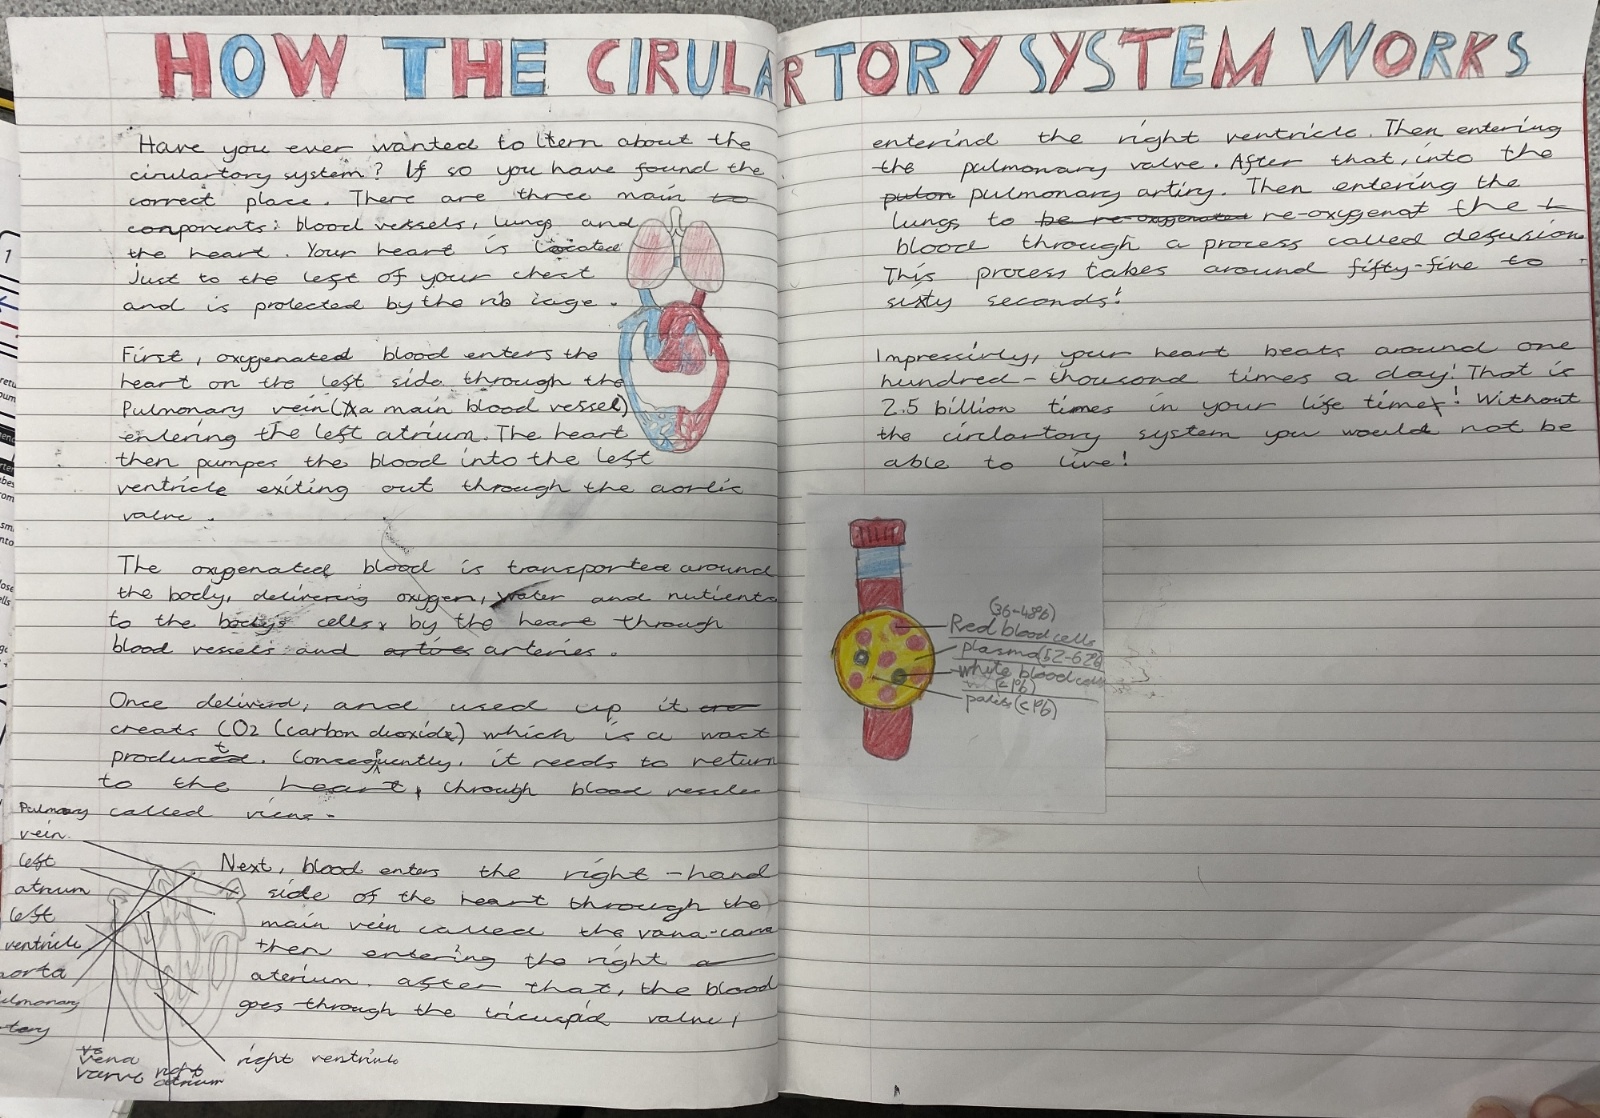 HOW THE CIRULARTORY SYSTEM WORKS
Have you ever wanted to lern about the
cirulartory system? If so you have found the
correct place. There are three main to
componerts: blood vessels, lungs and
the heart. Your heart is located
just to the left of your chest
and is protected by the rib cage.
First, oxygenated blood enters the
heart on the left side through the
Pulmonary vein (a main blood vessel)
entering the left atrium. The heart
then pumpes the blood into the left
ventricle exiting out through the aortic
valve.
The oxygenated blood is transported around
the body, delivering oxygen, water and nutients
to the bodys cells, by the heart through
blood vessels and arteries.
Once deliverd, and used up it
creats CO2 (carbon dioxide) which is a wast
product. Consequently, it needs to return
to the heart, through blood vessles
called viens.
Pulmonary
vein
left
atrium
left
ventricle
aorta
tery
vs
vena
varve
right
atrium
right ventricle
Next, blood enters the right-hand
side of the heart through the
main vein called the vana-cava
then entering the right a
aterium. after that, the blood
goes through the tricuspid valve,
enterind the right ventricle. Then entering
the pulmonary valve. After that, into the
pulon pulmonary artiry. Then entering the
lungs to be re-oxygenated re-oxygenat the
blood through a process called defusion.
This process takes around fifty-five to
sixty seconds!
Impressivly, your heart beats around one
hundred-thousand times a day! That is
2.5 billion times in your life time! Without
the circlartory system you would not be
able to live!
(36-48%)
Red blood cells
plasma (52-62%)
white blood cells
(<1%)
(<1%)